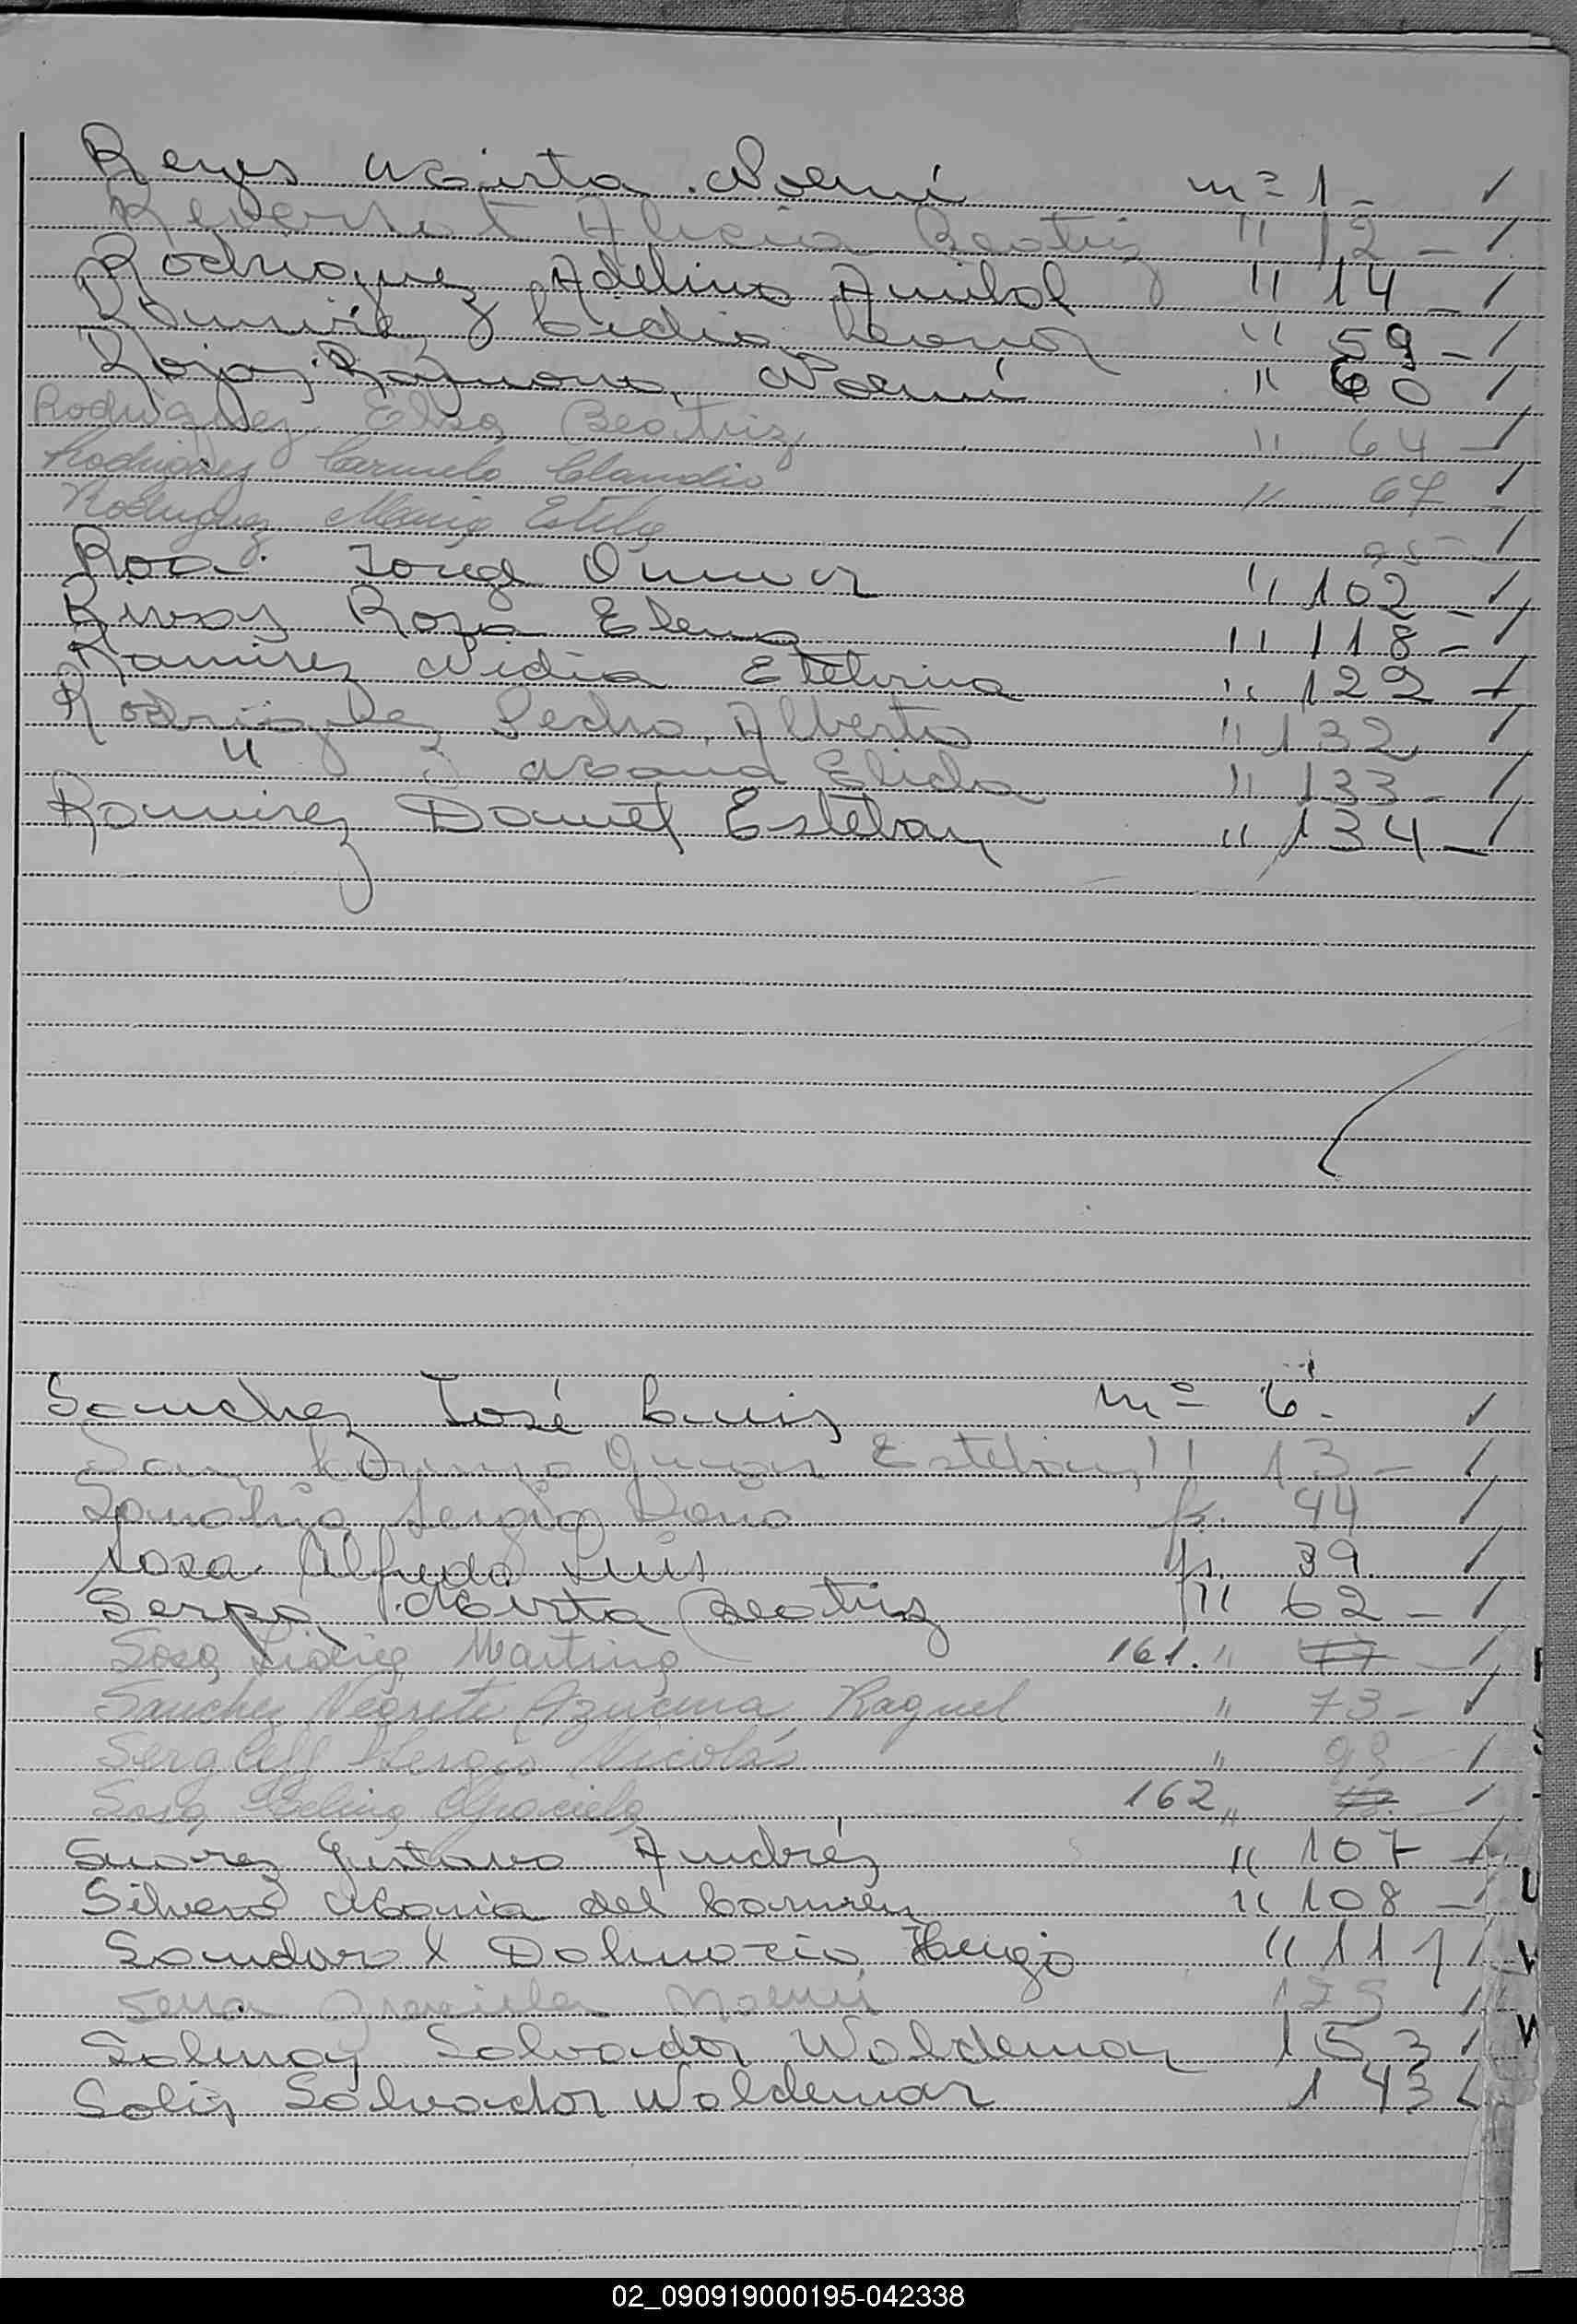 Reyes Mirta Noemí nº 1 -
Reversat Alicia Beatriz " 12 -
Rodriguez Adelino Anibal " 14 -
Ramirez Lidia Leonor " 59 -
Rojas Ramona Noemí " 60
Rodriguez Elsa Beatriz " 64 -
Rodriguez Carmelo Claudio " 67 -
Rodriguez María Estela 95 -
Roa Jorge Omar " 102 -
Rivas Rosa Elena " 118 -
Ramirez Nidia Etelvina " 122 -
Rodriguez Pedro Alberto " 132
" María Elida " 133 -
Ramirez Daniel Esteban " 134 -
Sanchez José Luis nº 6 -
San Lorenzo Omar Esteban " 13 -
Sanabria Sergio Darío fs. 44
Sosa Alfredo Luis fs. 39
Serpa Mirta Beatriz " 62 -
Sosa Lidia Martina 161. " 77 -
Sanchez Negrete Azucena Raquel " 73 -
Sergieff Sergio Nicolás " 93 -
Sosa Graciela 162 "
Suarez Gustavo Andrés " 107 -
Silvero María del Carmen " 108 -
Sandoval Dalmacio Hugo " 117
Serra Graciela Noemí 125
Salinas Salvador Waldemar 153
Solis Salvador Waldemar 143
02_090919000195-042338